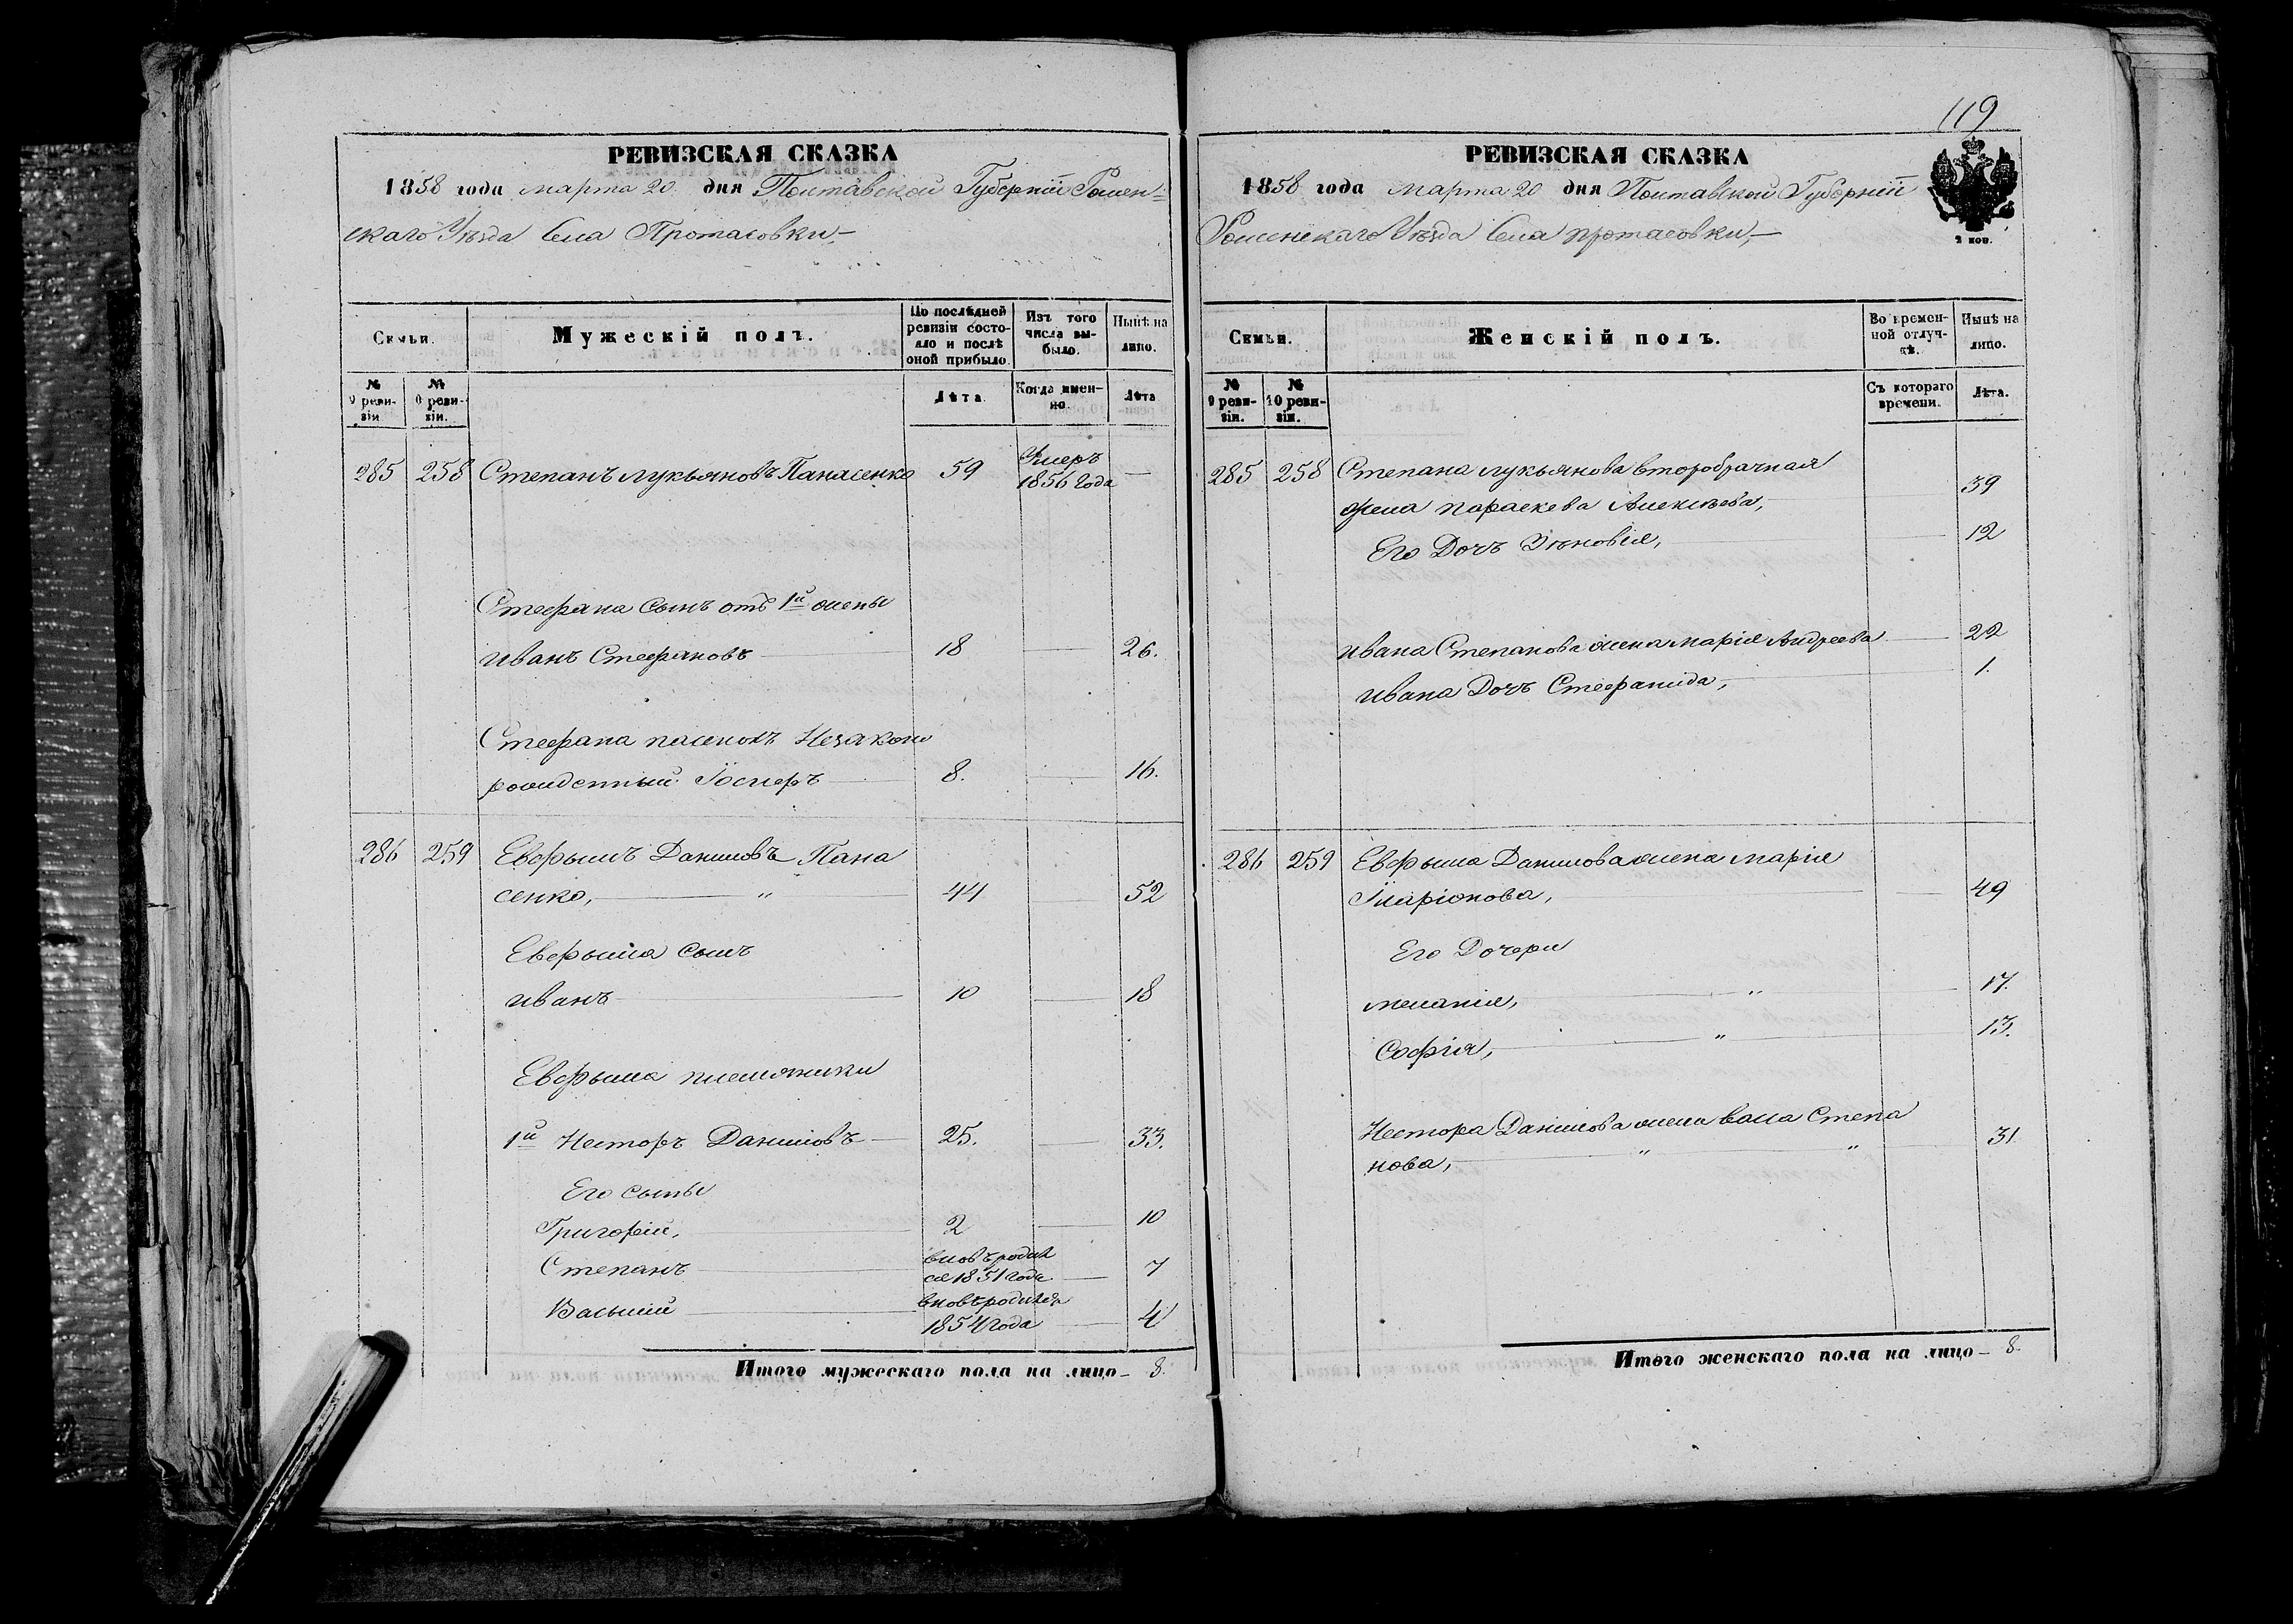 119
РЕВИЗСКАЯ СКАЗКА
1858 года марта 20 дня Полтавской Губерніи Ромен-
скаго Уѣзда Села Протасовки,
Семьи.
Мужескій полъ.
По послѣдней
ревизіи состо-
яло и послѣ
оной прибыло.
Изъ того
числа вы-
было.
Нынѣ на
лицо.
№ 9 реви-
зіи
№ 0 реви-
зіи.
Лѣта
Когда имен-
но.
Лѣта
285 258 Степанъ Лукьяновъ Панасенко 59 Умеръ
1856 года —
Стефана Сынъ отъ 1й жены
Иванъ Стефановъ 18 — 26.
Стефана пасынокъ Незаконо
рожденный Іосифъ 8. — 16.
286 259 Евфымъ Даниловъ Пана
сенко, " 44 — 52
Евфыма сынъ
Иванъ 10 — 18
Евфыма племянники
1й Несторъ Даниловъ 25. — 33.
Его сыны
Григорій, 2 — 10
Степанъ вновь родил
ся 1851 года — 7
Василій вновь родился
1854 года — 4
Итого мужескаго пола на лицо — 8.
РЕВИЗСКАЯ СКАЗКА
1858 года марта 20 дня Полтавской Губерніи
Роменскаго Уѣзда Села Протасовки,
2 коп.
Семьи.
Женскій полъ.
Во времен-
ной отлуч-
кѣ.
Нынѣ на
лицо.
№ 9 реви-
зіи.
№ 10 реви-
зіи.
Съ котораго
времени.
Лѣта.
285 258 Степана Лукьянова второбрачная
жена Параскева Алексѣева, 39
Его Дочь Зѣновія, 12
Ивана Степанова жена Марія Андреева 22
Ивана Дочь Стефанида, 1.
286 259 Евфыма Данилова жена Марія
Иларіонова, 49
Его Дочери
Меланія, " 17.
Софія, " 13.
Нестора Данилова жена Степа
нова, " " 31.
Итого женскаго пола на лицо — 8.